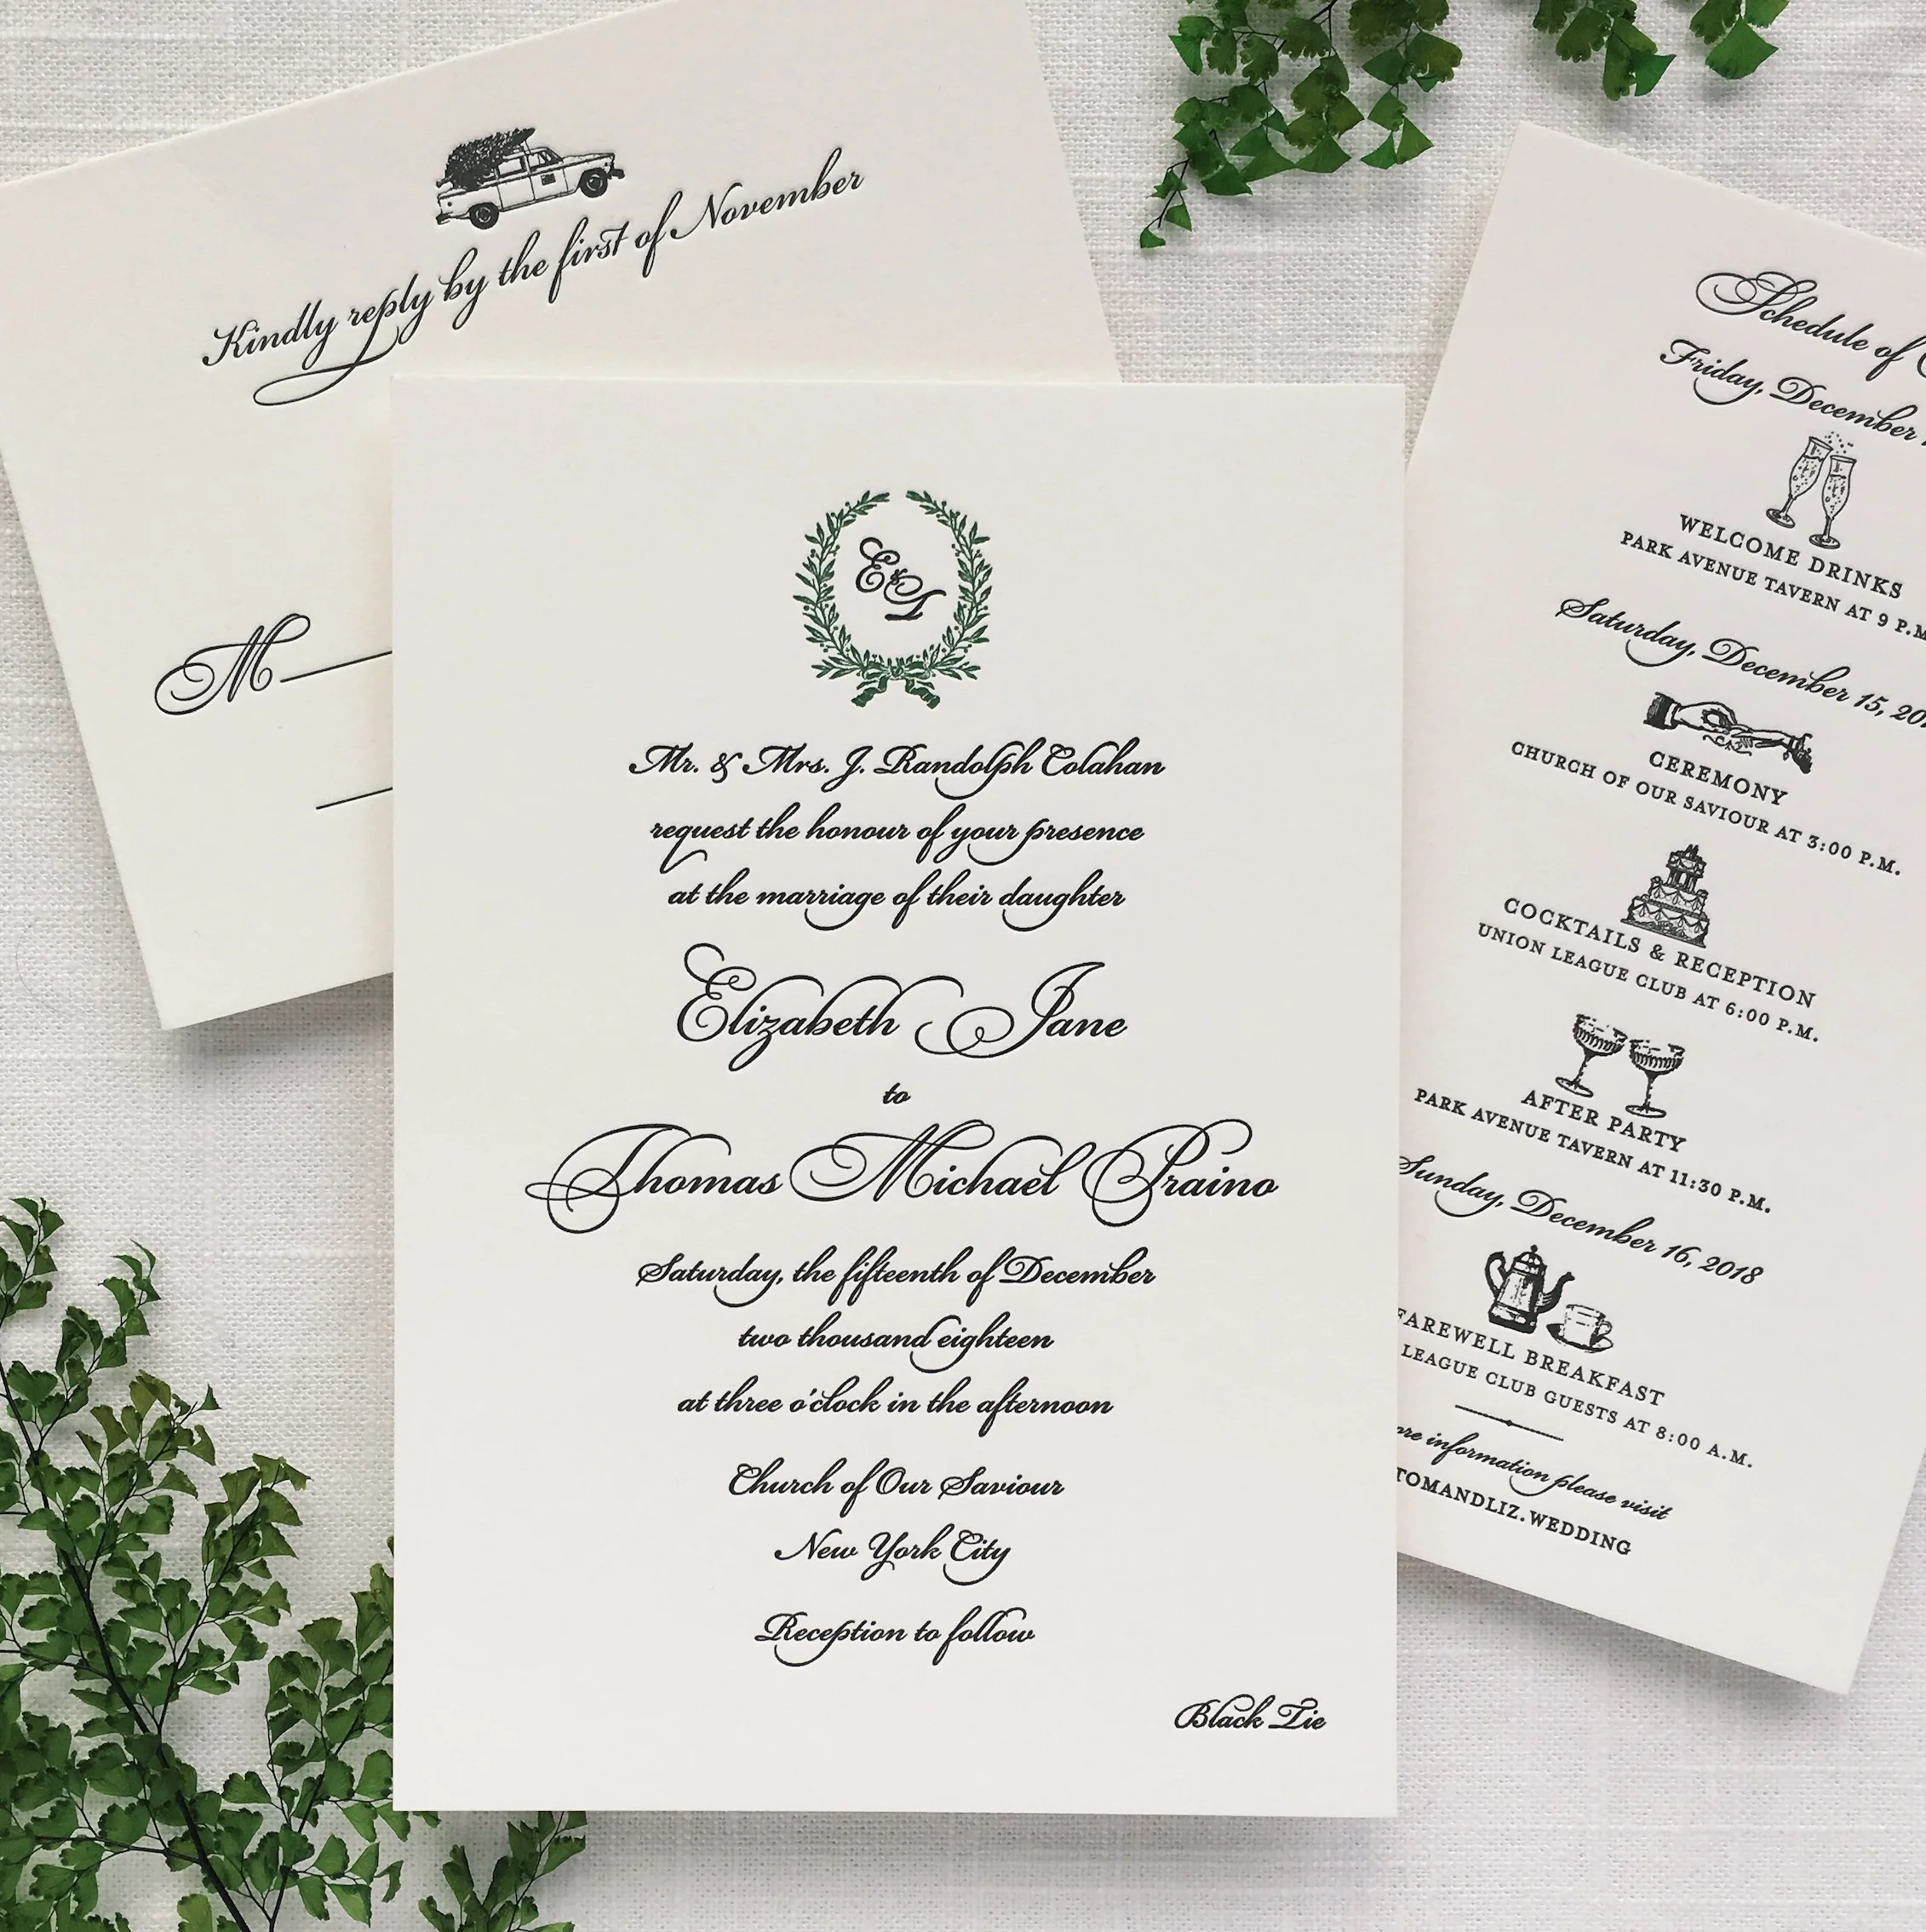 Kindly reply by the first of November
M
E&T
Mr. & Mrs. J. Randolph Colahan
request the honour of your presence
at the marriage of their daughter
Elizabeth Jane
to
Thomas Michael Praino
Saturday, the fifteenth of December
two thousand eighteen
at three o'clock in the afternoon
Church of Our Saviour
New York City
Reception to follow
Black Tie
Schedule of
Friday, December
WELCOME DRINKS
PARK AVENUE TAVERN AT 9 P.M
Saturday, December 15, 20
CEREMONY
CHURCH OF OUR SAVIOUR AT 3:00 P.M.
COCKTAILS & RECEPTION
UNION LEAGUE CLUB AT 6:00 P.M.
AFTER PARTY
PARK AVENUE TAVERN AT 11:30 P.M.
Sunday, December 16, 2018
FAREWELL BREAKFAST
LEAGUE CLUB GUESTS AT 8:00 A.M.
information please visit
TOMANDLIZ.WEDDING